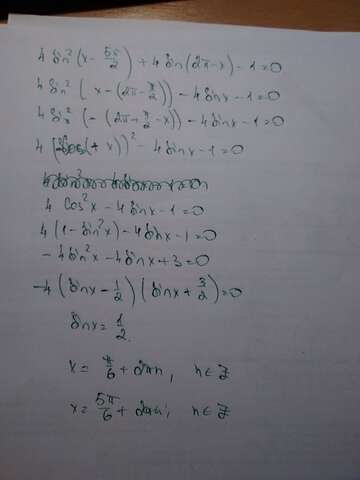 4 sin²(x - 5π/2) + 4 sin(2π - x) - 1 = 0
4 sin²(x - (2π - π/2)) - 4 sin x - 1 = 0
4 sin²(-(2π + π/2 - x)) - 4 sin x - 1 = 0
4 (cos(+x))² - 4 sin x - 1 = 0
4 cos²x - 4 sin x - 1 = 0
4(1 - sin²x) - 4 sin x - 1 = 0
- 4 sin²x - 4 sin x + 3 = 0
-4 (sin x - 1/2)(sin x + 3/2) = 0
sin x = 1/2.
x = π/6 + 2πn, n ∈ Z
x = 5π/6 + 2πn; n ∈ Z